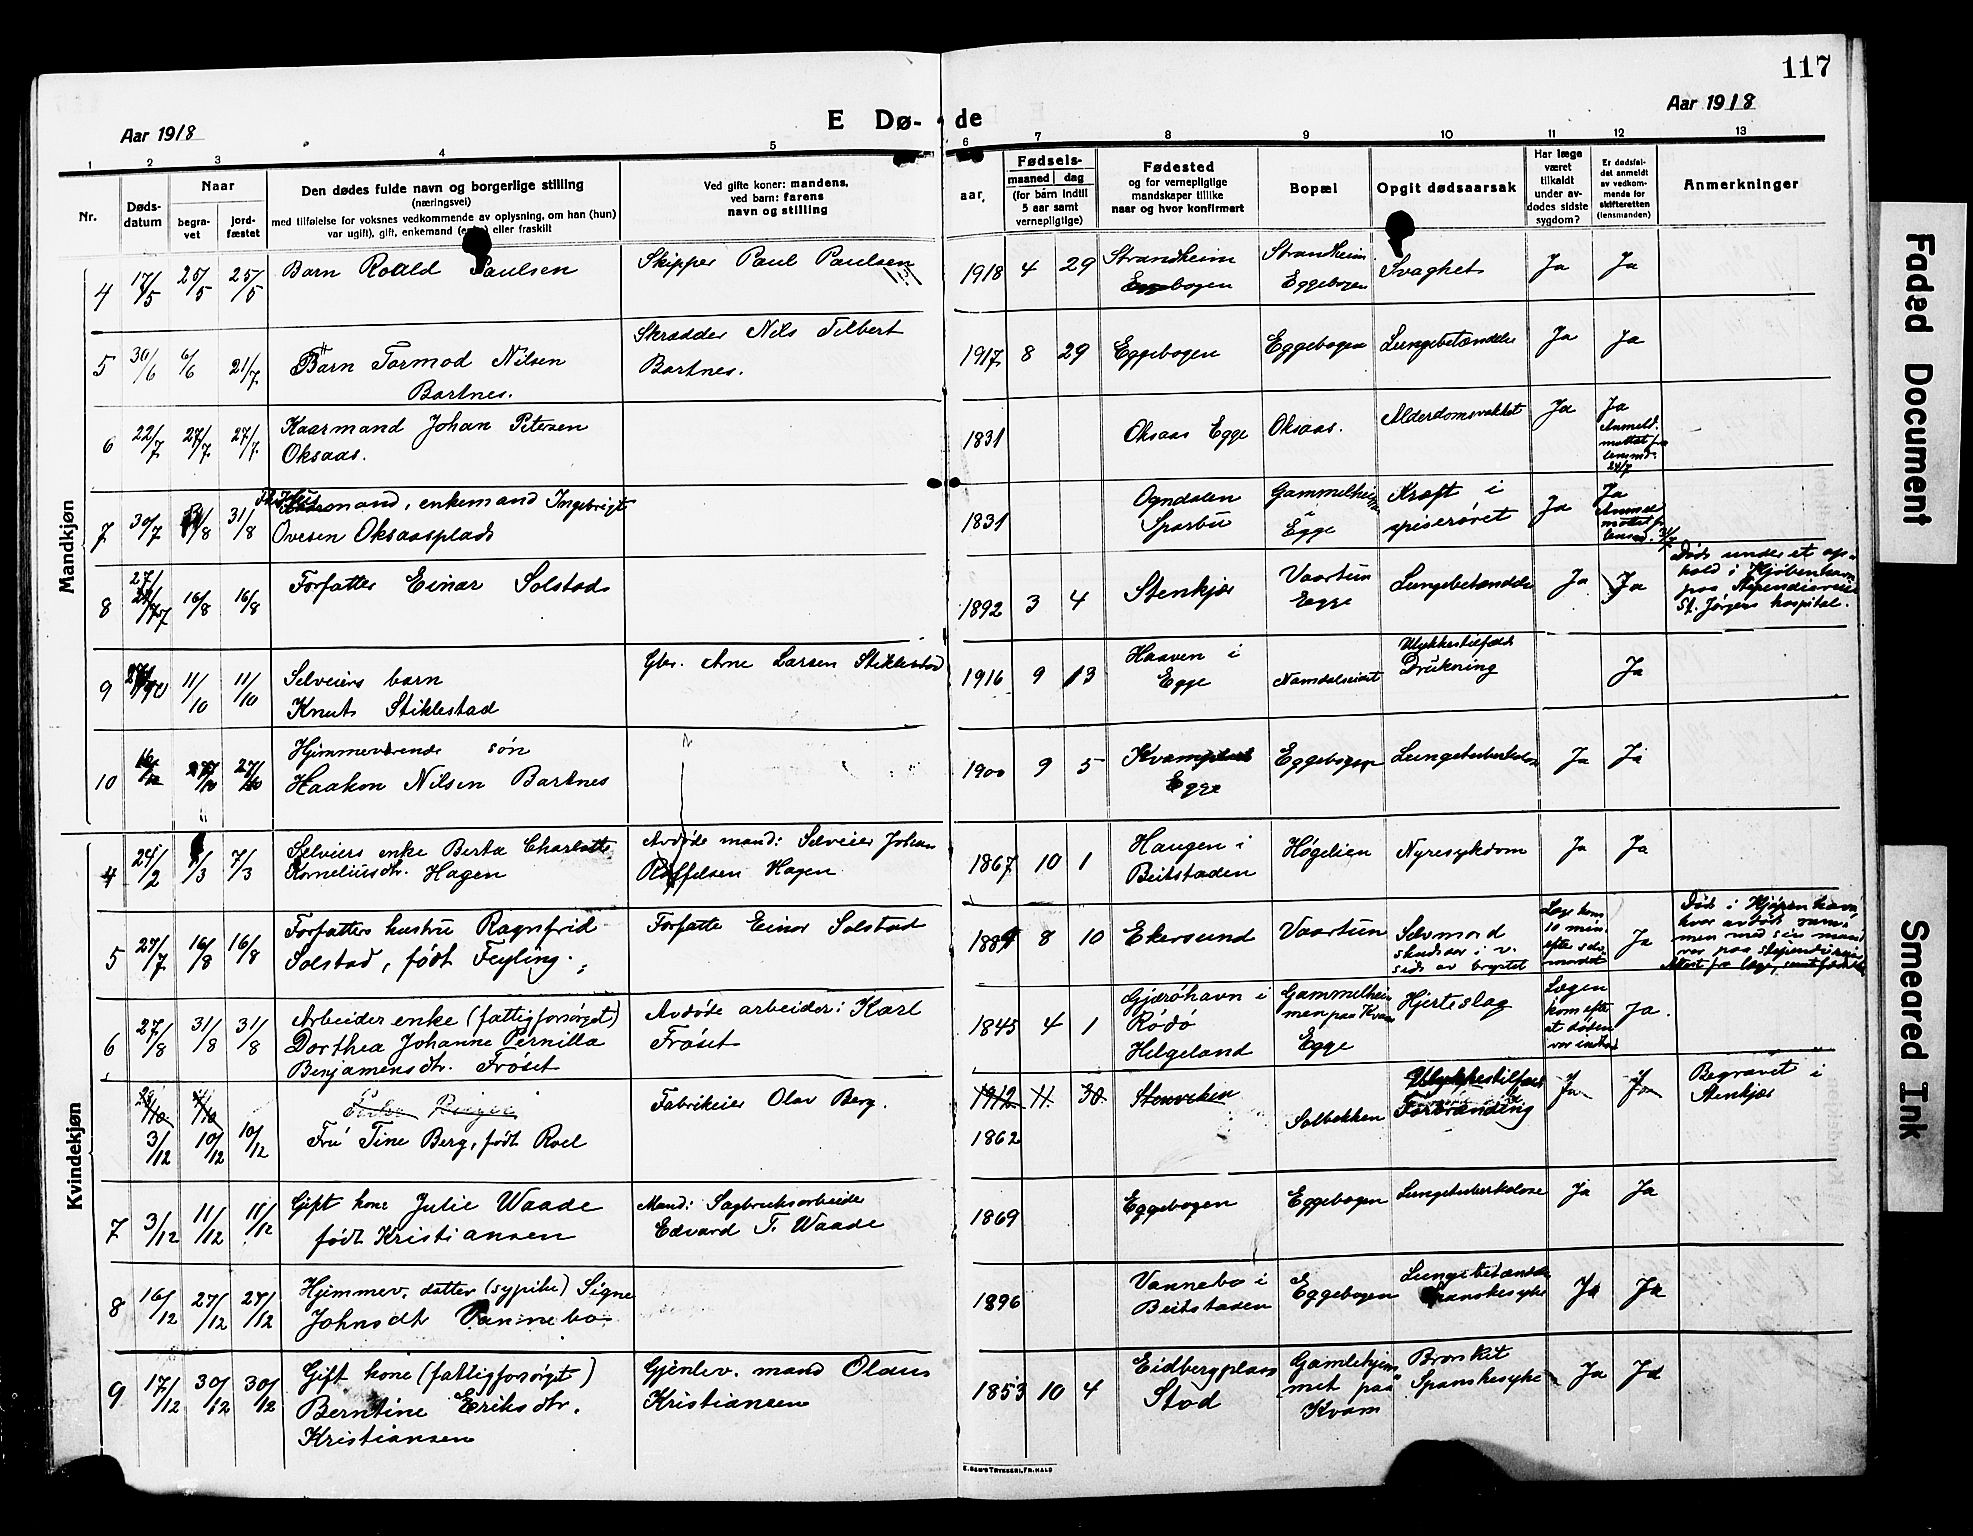 117
Aar 1918
E Dø-
de
Aar 1918
1 2 3 4 5 6 7 8 9 10 11 12 13
Nr.
Døds-
datum
Naar
begra-
vet
jord-
fæstet
Den dødes fulde navn og borgerlige stilling
(næringsvei)
med tilføielse for voksnes vedkommende av oplysning, om han (hun)
var ugift), gift, enkemand (enke) eller fraskilt
Ved gifte koner: mandens,
ved barn: farens
navn og stilling
Fødsels-
aar,
maaned
dag
(for barn indtil
5 aar samt
vernepligtige)
Fødested
og for vernepligtige
mandskaper tillike
naar og hvor konfirmert
Bopæl
Opgit dødsaarsak
Har læge
været
tilkaldt
under av-
dødes sidste
sygdom?
Er dødsfal-
det anmeldt
av vedkom-
mende for
skifteretten
(lensmanden)
Anmerkninger
Mandkjøn
4 17/5 25/5 25/5
Barn Roald Paulsen
Skipper Paul Paulsen
1918 4 29
Strandheim
Eggebogen
Strandheim
Eggebogen
Svaghet
Ja Ja
5 30/6 6/6 21/7
Barn Tormod Nilsen
Bartnes.
Skrædder Nils Tilbert
Bartnes.
1917 8 29
Eggebogen
Eggebogen
Lungebetændelse
Ja Ja
6 22/7 27/7 27/7
Kaarmand Johan Petersen
Oksaas.
1831
Oksaas Egge
Oksaas.
Alderdomssvakhet
Ja
Ja
Anmeld.
mottat fra
lensmd.
24/7
7 30/7 31/8 31/8
Husmand, enkemand Ingebrigt
Ovesen Oksaasplads
1831
Ogndalen
Sparbu
Gammelheim
Egge
Kræft i
spiserøret
Ja
Ja
8 27/7 16/8 16/8
Forfatter Einar Solstad
1892 3 4
Stenkjær
Vaartun
Egge
Lungebetændelse
Ja Ja
Døds under et op-
hold i Kjøbenhavn
paa Stipendiereise
St. Jørgens hospital.
9
11/10 11/10
Selveiers barn
Knut Stiklestad
Gbr. Arne Larsen Stiklestad
1916 9 13
Haaven i
Egge
Namdalseidet
Ulykkestilfælde
Drukning
Ja
10 16/12
Hjemmeværende søn
Haakon Nilsen Bartnes
1900 9 5
Egge
Eggebogen
Lungetuberkulose
Ja Ja
Kvindekjøn
4 24/2 7/3 7/3
Selveiers enke Berta Charlotte
Korneliusdtr. Hagen
Avdøde mand: Selveier Johan
Roffelsen Hagen
1867 10 1
Haugen i
Beitstaden
Høgelien
Nyresykdom
Ja Ja
5 27/7 16/8 16/8
Forfatters hustru Ragnfrid
Solstad, født Feyling.
Forfatte Einar Solstad
1889 8 10
Ekersund
Vaartun
Selvmord
skudsaar i v.
side av brystet
Læge kom
10 min.
efter selv-
mordet
Ja
Død i Kjøbenhavn,
hvor avdøde sam-
men med sin mand
var paa stipendiereise
6 27/8 31/8 31/8
Arbeider enke (fattigforsørget)
Dorthea Johanne Pernilla
Benjamensdtr. Frøset
Avdøde arbeider: Karl
Frøset
1845 4 1
Gjærøhavn i
Rødø
Helgeland
Gammelhei-
men paa Kvam
Egge
Hjerteslag
Lægen
kom efter
at døden
var indtraadt
Ja.
3/12 10/12 10/12
Fru Tine Berg, født Roel
Fabrikeier Olav Berg.
1912 11 30
1862
Stenviken
Solbekken
Ulykkestilfælde
Forbrænding
Ja Ja
Begravet i
Stenkjær
7 3/12 11/12 11/12
Gift kone Julie Waade
født Kristiansen
Mand: Sagbruksarbeide
Edvard T. Waade
1869
Eggebogen
Eggebogen
Lungetuberkulose
Ja Ja
8 16/12 27/12 27/12
Hjemmev. datter (sypike) Signe
Johnsdt Vannebo
1896
Vannebo i
Beitstaden
Eggebogen
Lungebetændelse
Spanskesyke
Ja Ja
9 17/12 30/12 30/12
Gift kone (fattigforsørget)
Berntine Eriksdtr.
Kristiansen
Gjenlev. mand Olaus
Kristiansen
1853 10 4
Eidbergplass
Stod
Gamlehjem-
met paa
Kvam
Bronkit
Spanskesyke
Ja Ja
E. SEM'S TRYKKERI, FR.HALD
Faded Document
Smeared Ink